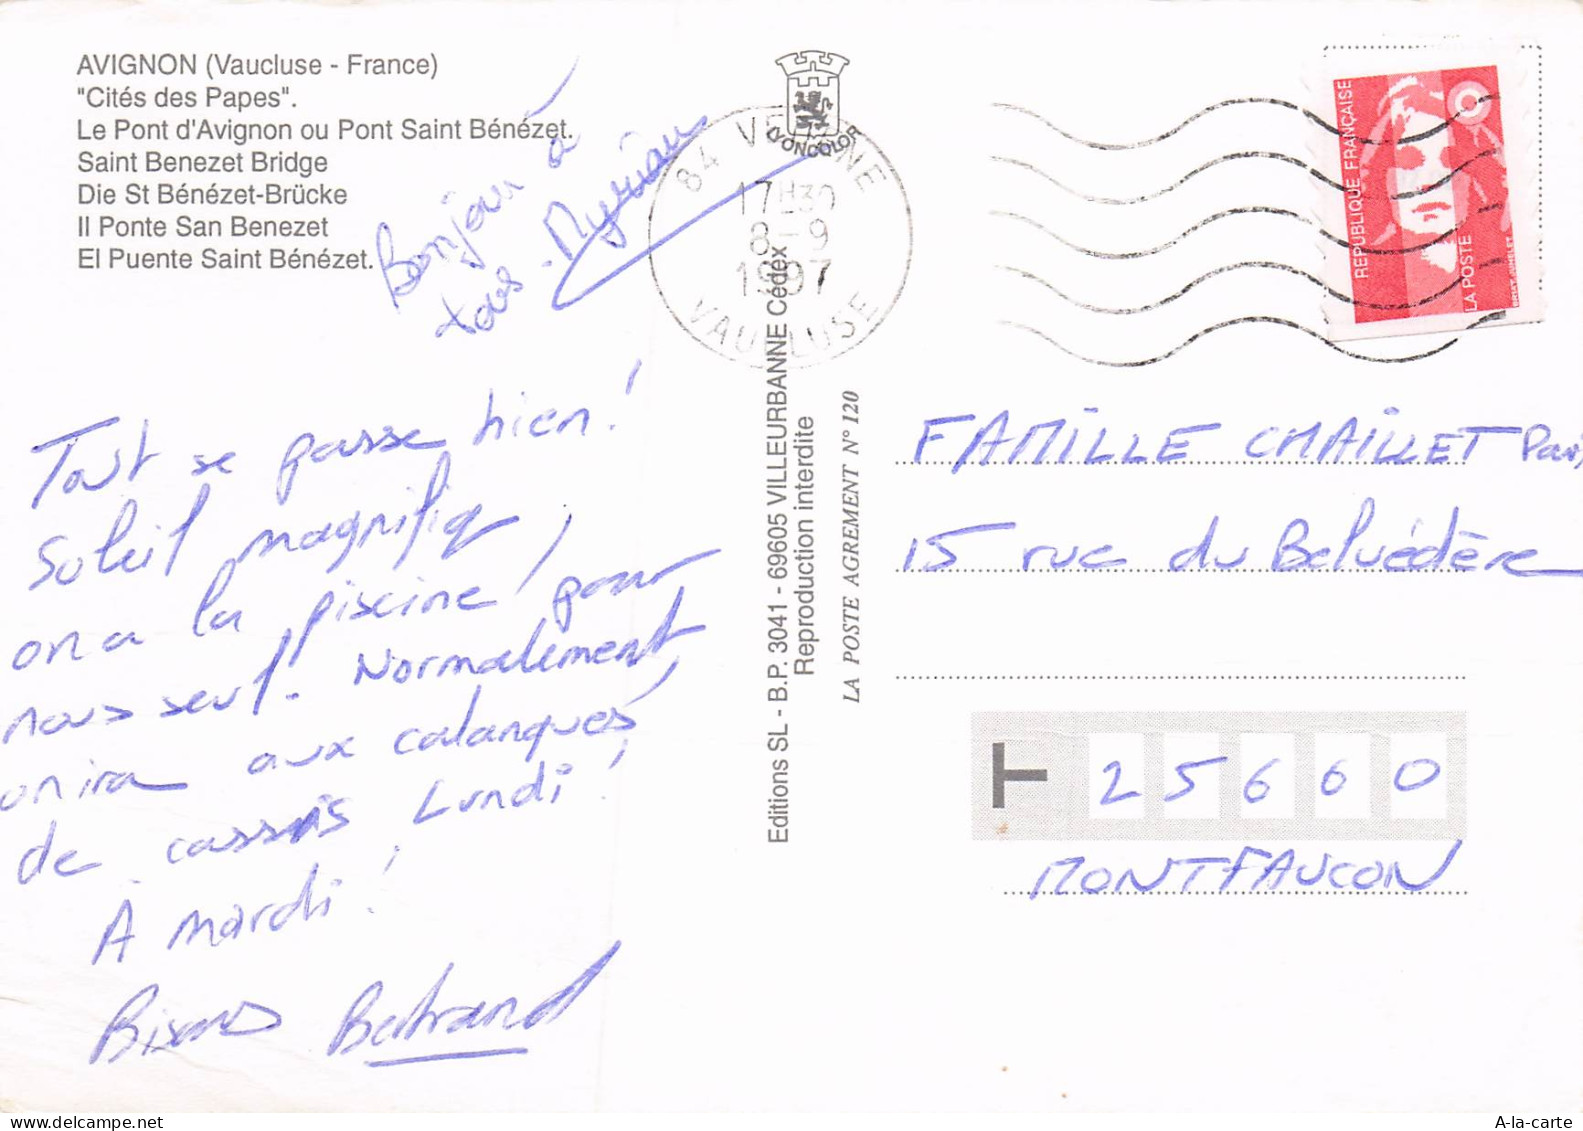 AVIGNON (Vaucluse - France)
"Cités des Papes".
Le Pont d'Avignon ou Pont Saint Bénézet.
Saint Benezet Bridge
Die St Bénézet-Brücke
Il Ponte San Benezet
El Puente Saint Bénézet.
Bonjour à
tous - Myriam
Tout se passe bien!
Soleil magnifiq,
on a la piscine pour
nous seul. Normalement
on ira aux calanques
de cassis Lundi!
À mardi!
Bisous Bertrand
LYONCOLOR
84 VEDENE
17H30
8-9
1997
VAUCLUSE
Editions SL - B.P. 3041 - 69605 VILLEURBANNE Cédex
Reproduction interdite
LA POSTE AGREMENT N° 120
REPUBLIQUE FRANÇAISE
LA POSTE
FAMILLE CHAILLET
15 rue du Belvédère
T
25660
MONTFAUCON
A-la-carte